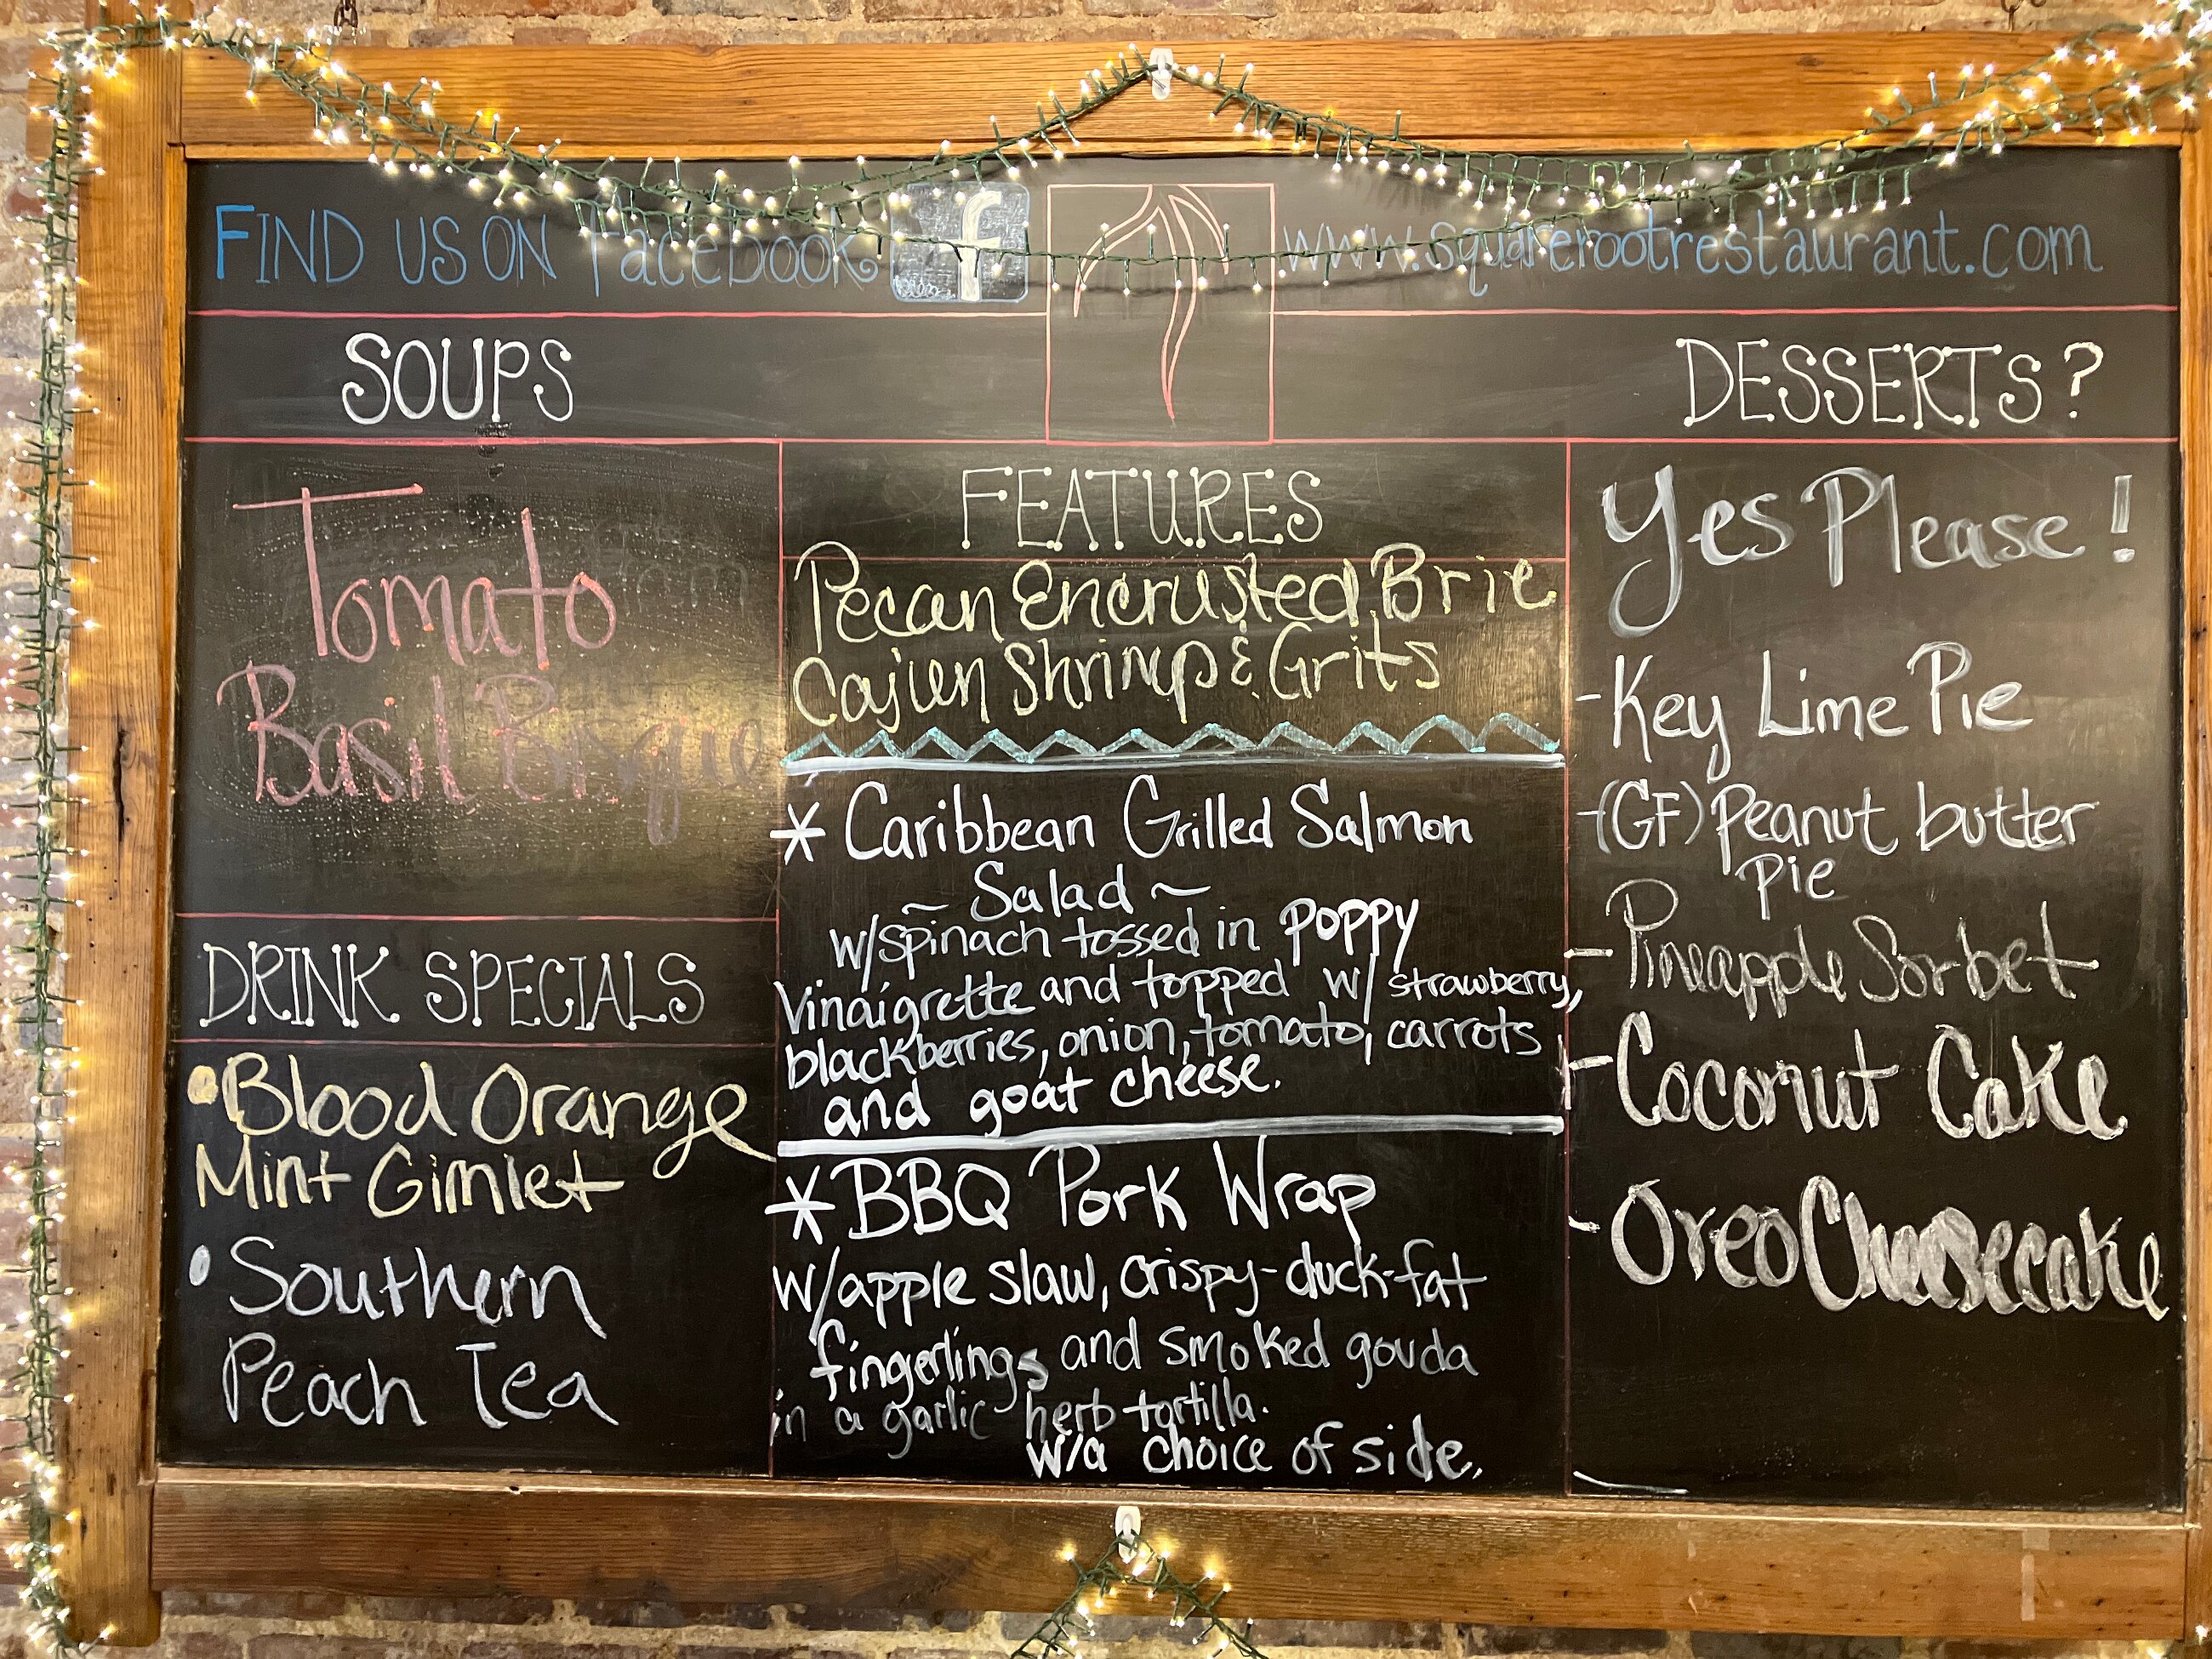 FIND US ON facebook f
www.squarerootrestaurant.com
SOUPS
Tomato
Basil Bisque
DRINK SPECIALS
• Blood Orange
Mint Gimlet
• Southern
Peach Tea
FEATURES
Pecan Encrusted Brie
Cajun Shrimp & Grits
* Caribbean Grilled Salmon
~ Salad ~
w/spinach tossed in poppy
vinaigrette and topped w/ strawberry,
blackberries, onion, tomato, carrots
and goat cheese.
* BBQ Pork Wrap
w/apple slaw, crispy-duck-fat
fingerlings and smoked gouda
in a garlic herb tortilla.
w/a choice of side.
DESSERTS?
Yes Please!
- Key Lime Pie
- (GF) Peanut butter
Pie
- Pineapple Sorbet
- Coconut Cake
- Oreo Cheesecake